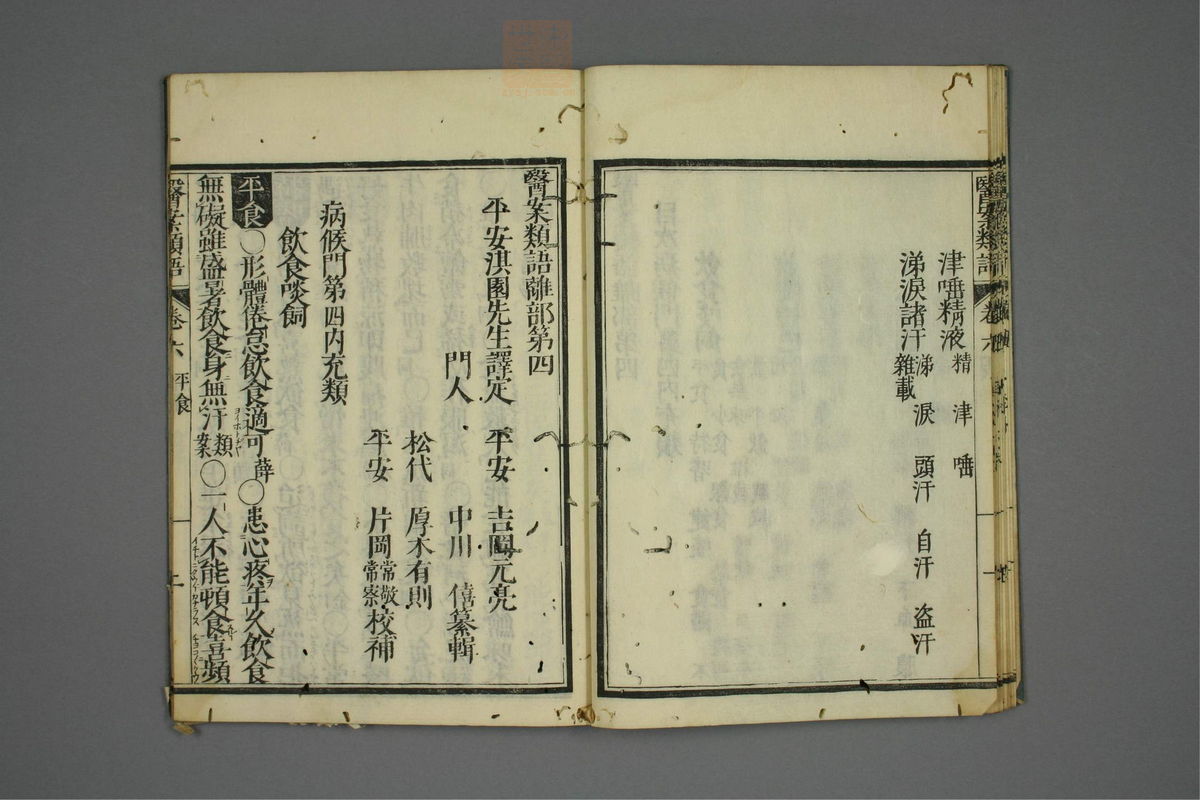 醫案類語 卷六
津唾精液 精 津 唾
涕淚諸汗 涕 淚 頭汗 自汗 盗汗
雜載
醫案類語離部第四
平安淇園先生譯定 平安 吉岡元亮
門人 中川 僖纂輯
松代 厚木有則
平安 片岡常敬常察校補
病候門第四内充類
飲食啖飼
平食○形體倦怠飲食適可薛○患心疼年久飲食
無礙雖盛暑飲食身無汗類案○一人不能頓食喜頻
醫案類語 卷六 平食 一